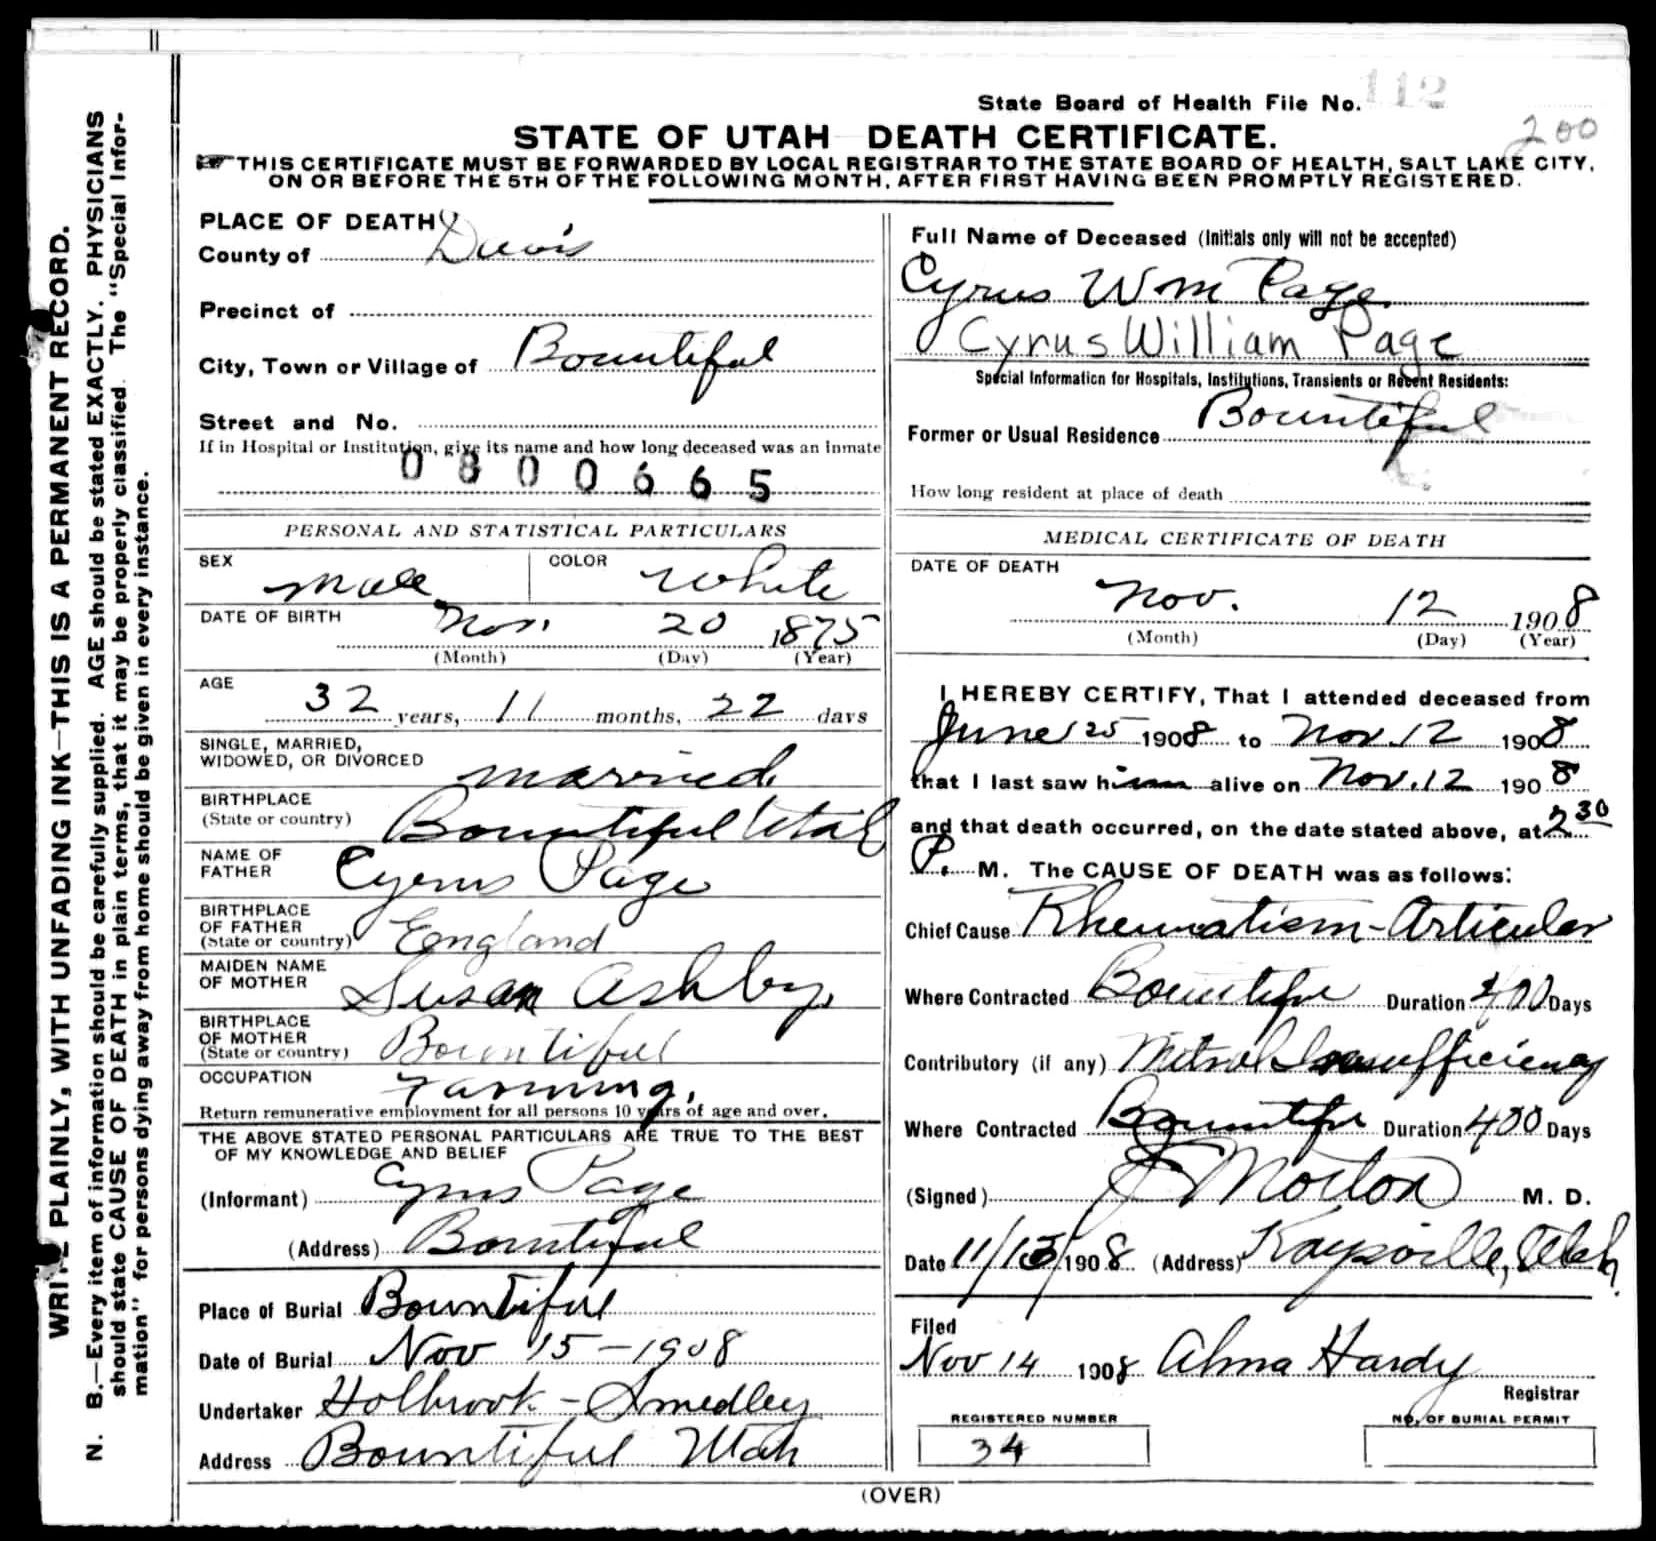 State Board of Health File No. 112
200
STATE OF UTAH DEATH CERTIFICATE.
THIS CERTIFICATE MUST BE FORWARDED BY LOCAL REGISTRAR TO THE STATE BOARD OF HEALTH, SALT LAKE CITY,
ON OR BEFORE THE 5TH OF THE FOLLOWING MONTH, AFTER FIRST HAVING BEEN PROMPTLY REGISTERED.
WRITE PLAINLY, WITH UNFADING INK—THIS IS A PERMANENT RECORD.
N. B.—Every item of information should be carefully supplied. AGE should be stated EXACTLY. PHYSICIANS
should state CAUSE OF DEATH in plain terms, that it may be properly classified. The "Special Infor-
mation" for persons dying away from home should be given in every instance.
PLACE OF DEATH
County of Davis
Precinct of
City, Town or Village of Bountiful
Street and No.
If in Hospital or Institution, give its name and how long deceased was an inmate
0800665
PERSONAL AND STATISTICAL PARTICULARS
SEX Male COLOR White
DATE OF BIRTH Nov. 20 1875
(Month) (Day) (Year)
AGE
32 years, 11 months, 22 days
SINGLE, MARRIED,
WIDOWED, OR DIVORCED married
BIRTHPLACE
(State or country) Bountiful Utah
NAME OF
FATHER Cyrus Page
BIRTHPLACE
OF FATHER
(State or country) England
MAIDEN NAME
OF MOTHER Susan Ashby
BIRTHPLACE
OF MOTHER
(State or country) Bountiful
OCCUPATION Farming.
Return remunerative employment for all persons 10 years of age and over.
THE ABOVE STATED PERSONAL PARTICULARS ARE TRUE TO THE BEST
OF MY KNOWLEDGE AND BELIEF
(Informant) Cyrus Page
(Address) Bountiful
Place of Burial Bountiful
Date of Burial Nov 15-1908
Undertaker Holbrook-Smedley
Address Bountiful Utah
Full Name of Deceased (Initials only will not be accepted)
Cyrus Wm Page
Cyrus William Page
Special Information for Hospitals, Institutions, Transients or Recent Residents:
Former or Usual Residence Bountiful
How long resident at place of death
MEDICAL CERTIFICATE OF DEATH
DATE OF DEATH
Nov. 12 1908
(Month) (Day) (Year)
I HEREBY CERTIFY, That I attended deceased from
June 25 1908 to Nov. 12 1908
that I last saw him alive on Nov. 12 1908
and that death occurred, on the date stated above, at 2 30
P. M. The CAUSE OF DEATH was as follows:
Chief Cause Rheumatism-Articular
Where Contracted Bountiful Duration 400 Days
Contributory (if any) Mitral Insufficiency
Where Contracted Bountiful Duration 400 Days
(Signed) Morton M. D.
Date 11/13/1908 (Address) Kaysville, Utah
Filed
Nov 14 1908 Alma Hardy
Registrar
REGISTERED NUMBER
34
NO. OF BURIAL PERMIT
(OVER)